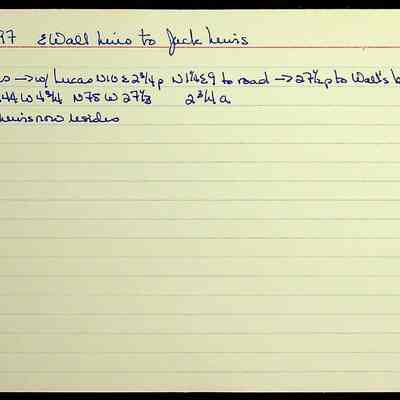 97 E Wall Lewis to Jack Lewis
→ w/ Lucas N10 E 2¾ p N1¼ E9 to road → 27½ p to Wall's
44 W 4¾ N78 W 27⅓ 2¾ a
Lewis now resides